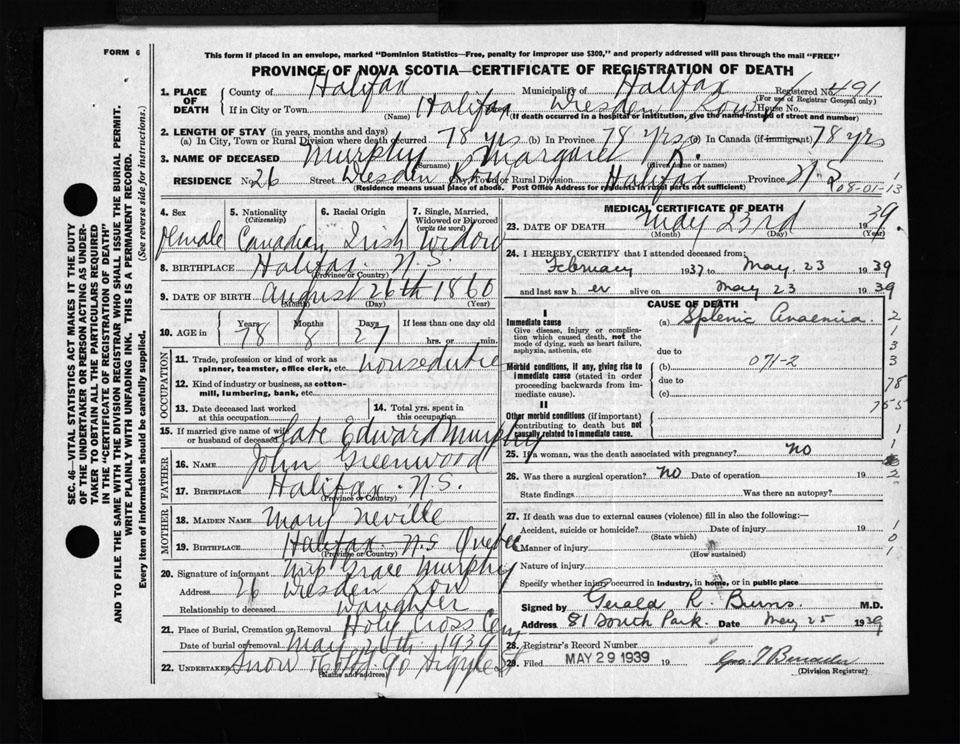 FORM 6
This form if placed in an envelope, marked "Dominion Statistics—Free, penalty for improper use $300," and properly addressed will pass through the mail "FREE"
PROVINCE OF NOVA SCOTIA—CERTIFICATE OF REGISTRATION OF DEATH
1. PLACE OF DEATH
County of Halifax Municipality of Halifax Registered No. 491
(For use of Registrar General only)
If in City or Town Halifax Street Dresden Row House No.
(Name) (If death occurred in a hospital or institution, give the name instead of street and number)
2. LENGTH OF STAY (in years, months and days)
(a) In City, Town or Rural Division where death occurred 78 yrs (b) In Province 78 yrs (c) In Canada (if immigrant) 78 yrs
3. NAME OF DECEASED Murphy Margaret
(Surname) (Given name or names)
RESIDENCE No. 26 Street Dresden Row City, Town or Rural Division Halifax Province N.S
(Residence means usual place of abode. Post Office Address for residents in rural parts not sufficient)
08-01-13
4. Sex Female
5. Nationality (Citizenship) Canadian
6. Racial Origin Irish
7. Single, Married, Widowed or Divorced (write the word) Widow
8. BIRTHPLACE Halifax. N.S.
(Province or Country)
9. DATE OF BIRTH August 26th 1860
(Month) (Day) (Year)
10. AGE in Years 78 Months 8 Days 27 If less than one day hrs. or min.
OCCUPATION
11. Trade, profession or kind of work as spinner, teamster, office clerk, etc. Houseduties
12. Kind of industry or business, as cotton-mill, lumbering, bank, etc.
13. Date deceased last worked at this occupation
14. Total yrs. spent in this occupation
15. If married give name of wife or husband of deceased Late Edward Murphy
FATHER
16. NAME John Greenwood
17. BIRTHPLACE Halifax. N.S.
(Province or Country)
MOTHER
18. MAIDEN NAME Mary Neville
19. BIRTHPLACE Halifax. N.S Quebec
(Province or Country)
20. Signature of informant Mrs Grace Murphy
Address 26 Dresden Row
Relationship to deceased Daughter
21. Place of Burial, Cremation or Removal Holy Cross Cem
Date of burial or removal May 26th 1939
22. UNDERTAKER Snow & Co Ltd 90 Argyle St
(Name and address)
MEDICAL CERTIFICATE OF DEATH
23. DATE OF DEATH May 23rd 1939.
(Month) (Day) (Year)
24. I HEREBY CERTIFY that I attended deceased from:
February 1937 to May 23 1939
and last saw her alive on May 23 1939
CAUSE OF DEATH
I
Immediate cause
Give disease, injury or complication which caused death, not the mode of dying, such as heart failure, asphyxia, asthenia, etc
(a) Splenic Anaemia.
due to
Morbid conditions, if any, giving rise to immediate cause (stated in order proceeding backwards from immediate cause).
(b) 071-2
due to
(c)
II
Other morbid conditions (if important) contributing to death but not causally related to immediate cause.
2
1
3
3
78
755
1
1
2
1
0
1
25. If a woman, was the death associated with pregnancy? No
26. Was there a surgical operation? No Date of operation 19
State findings Was there an autopsy?
27. If death was due to external causes (violence) fill in also the following:—
Accident, suicide or homicide? Date of injury 19
(State which)
Manner of injury
(How sustained)
Nature of injury
Specify whether injury occurred in industry, in home, or in public place
Signed by Gerald R. Burns. M.D.
Address 81 South Park. Date May 25 1939
28. Registrar's Record Number
29. Filed MAY 29 1939 19
(Division Registrar)
SEC. 46—VITAL STATISTICS ACT MAKES IT THE DUTY OF THE UNDERTAKER OR PERSON ACTING AS UNDERTAKER TO OBTAIN ALL THE PARTICULARS REQUIRED IN THE "CERTIFICATE OF REGISTRATION OF DEATH" AND TO FILE THE SAME WITH THE DIVISION REGISTRAR WHO SHALL ISSUE THE BURIAL PERMIT.
WRITE PLAINLY WITH UNFADING INK. THIS IS A PERMANENT RECORD.
Every item of information should be carefully supplied. (See reverse side for instructions.)